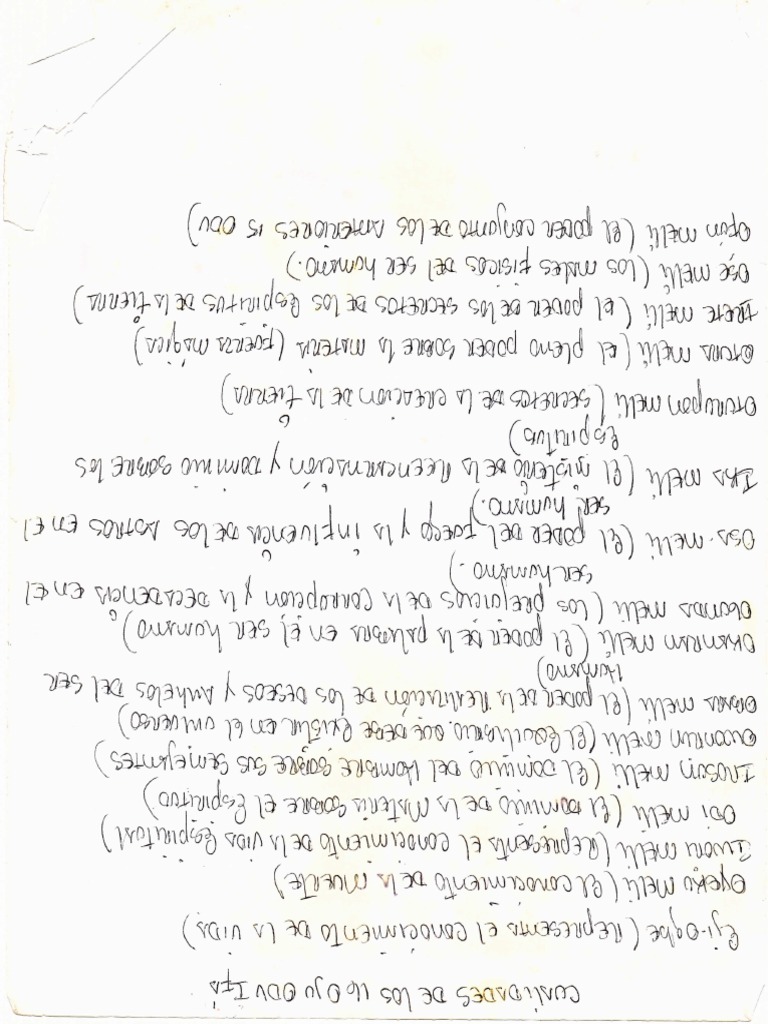 CUALIDADES DE LOS 16 OJU ODU IFA
Eji-Ogbe (REPRESENTA EL CONOCIMIENTO DE LA VIDA)
Oyeku melli (EL CONOCIMIENTO DE LA MUERTE)
Iwori melli (REPRESENTA EL CONOCIMIENTO DE LA VIDA ESPIRITUAL)
ODI melli (EL DOMINIO DE LA MATERIA SOBRE EL ESPIRITUD)
IROSUN melli (EL DOMINIO DEL HOMBRE SOBRE SUS SEMEJANTES)
OJUONRUN melli (EL EQUILIBRIO QUE DEBE EXISTIR EN EL UNIVERSO)
OBARA melli (EL PODER DE LA REALIZACIÓN DE LOS DESEOS Y ANHELOS DEL SER
HUMANO)
OKANRAN melli (EL PODER DE LA PALABRA EN EL SER HUMANO)
OGUNDA melli (LOS PREJUICIOS DE LA CORRUPCION Y LA DECADENCIA EN EL
SER HUMANO.)
OSA-melli (EL PODER DEL FUEGO Y LA INFLUENCIA DE LOS ASTROS EN EL
SER HUMANO.)
IKA melli (EL MISTERIO DE LA REENCARNACIÓN Y DOMINIO SOBRE LOS
ESPIRITUS)
OTURUPON melli (SECRETOS DE LA CREACION DE LA TIERRA)
OTURA melli (EL PLENO PODER SOBRE LA MATERIA (FUERZA MÁGICA)
IRETE melli (EL PODER DE LOS SECRETOS DE LOS ESPIRITUS DE LA TIERRA)
OSE melli (LOS MALES FISICOS DEL SER HUMANO.)
OFUN melli (EL PODER CONJUNTO DE LOS ANTERIORES 15 ODU)